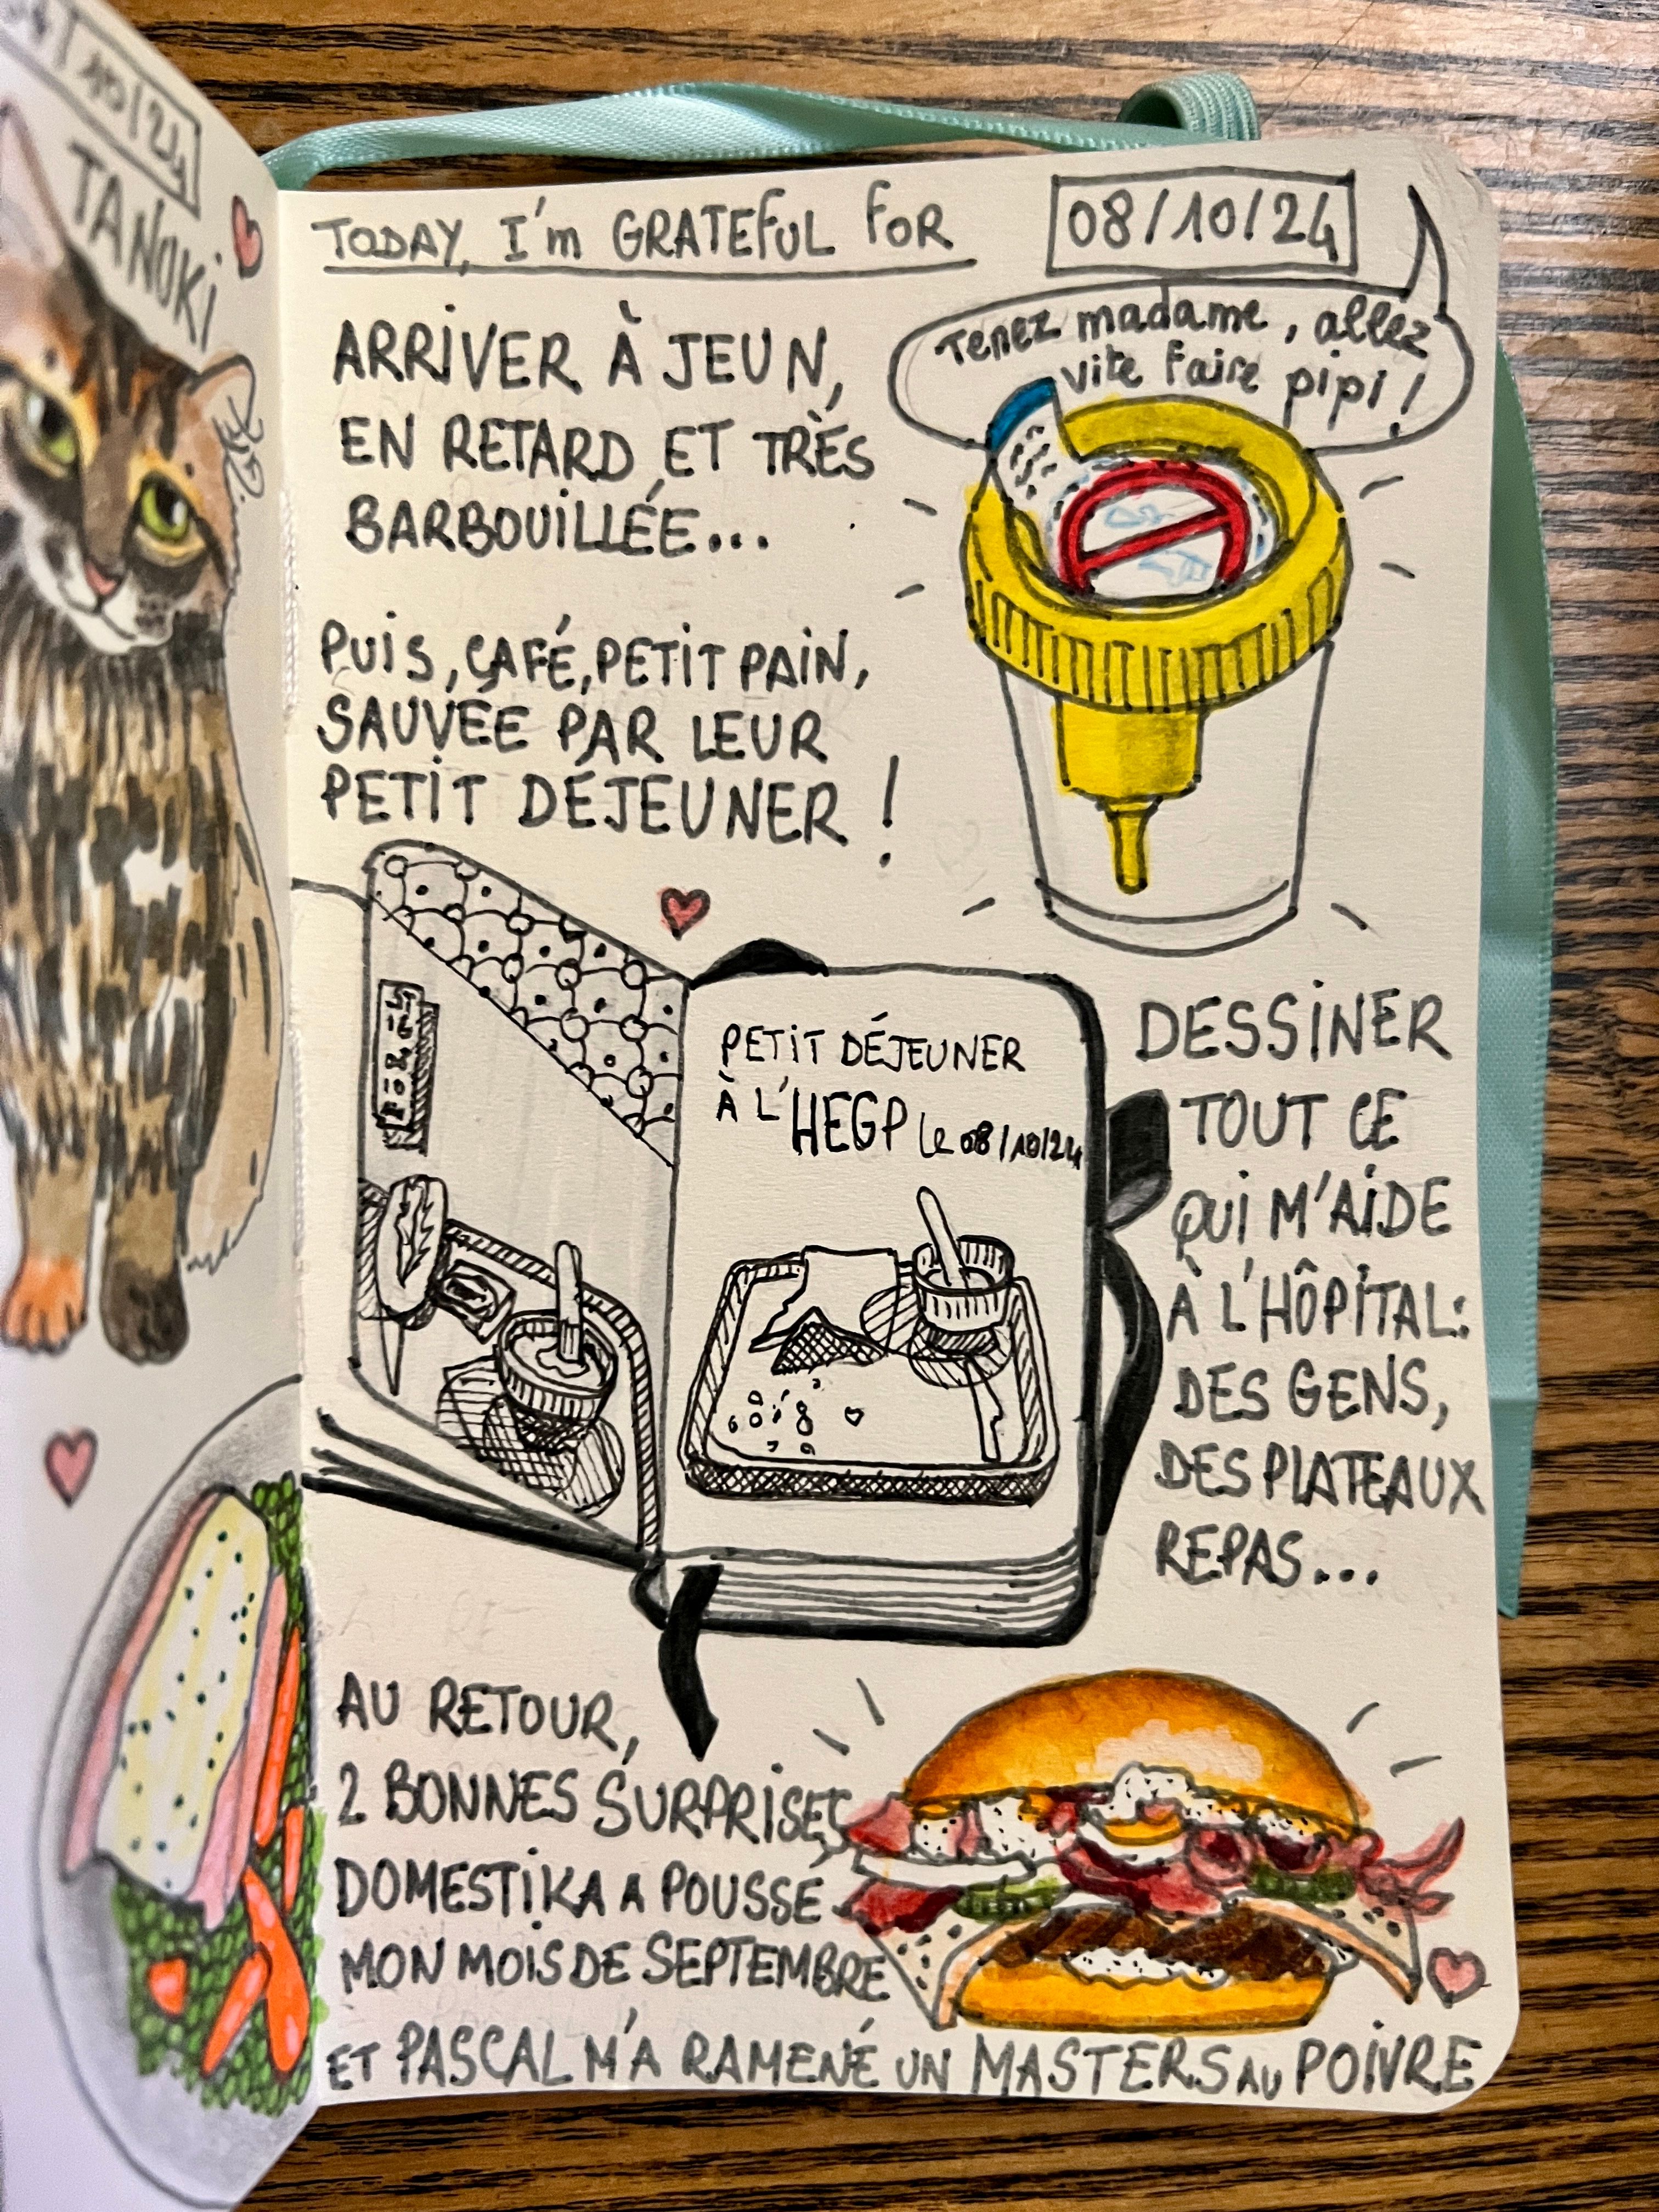 10/24
TANUKI
TODAY, I'm GRATEFUL FOR
08/10/24
ARRIVER À JEUN,
EN RETARD ET TRÈS
BARBOUILLÉE...
Tenez madame, allez
vite faire pipi !
PUIS, CAFÉ, PETIT PAIN,
SAUVÉE PAR LEUR
PETIT DÉJEUNER !
PETIT DÉJEUNER
À L'HEGP le 08/10/24
DESSINER
TOUT CE
QUI M'AIDE
À L'HÔPITAL:
DES GENS,
DES PLATEAUX
REPAS...
AU RETOUR,
2 BONNES SURPRISES
DOMESTIKA A POUSSÉ
MON MOIS DE SEPTEMBRE
ET PASCAL M'A RAMENÉ UN MASTERS AU POIVRE